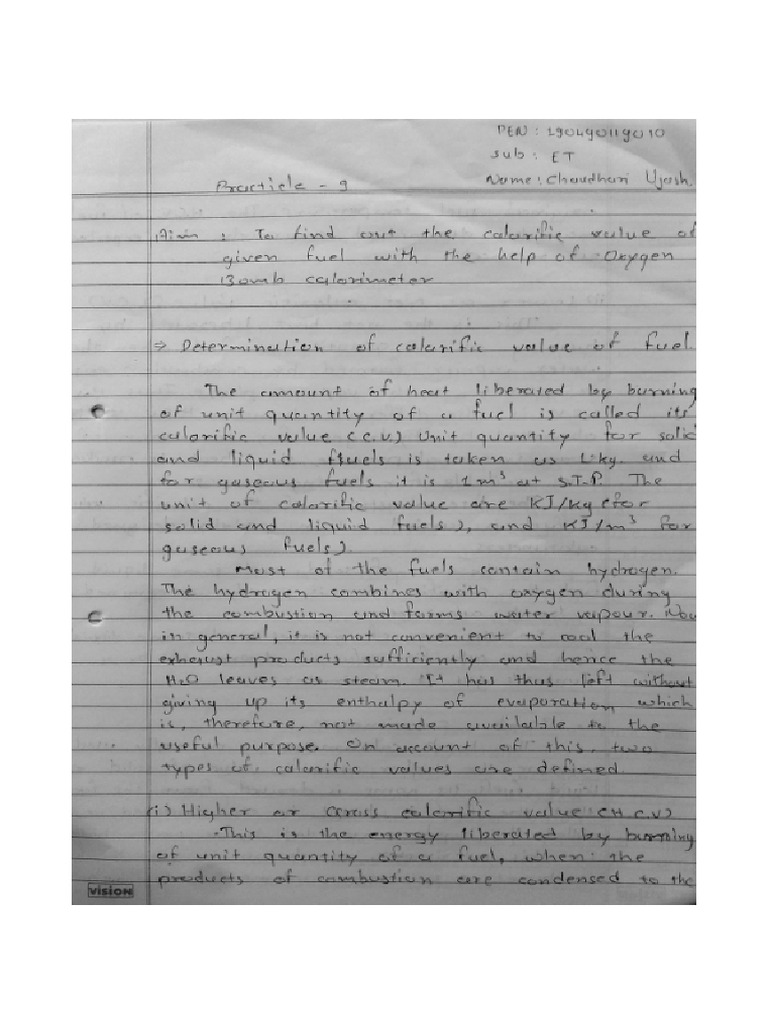 PEN : 190490119010
Sub : ET
Name : Chaudhari Ujash.
Practicle - 9
Aim : To find out the calorific value of
given fuel with the help of Oxygen
Bomb calorimeter
⇒ Determination of calorific value of fuel.
The amount of heat liberated by burning
of unit quantity of a fuel is called its
calorific value (C.V.) Unit quantity for solid
and liquid fuels is taken as 1 kg and
for gaseous fuels it is 1m³ at S.T.P. The
unit of calorific value are KJ/Kg (for
solid and liquid fuels), and KJ/m³ for
gaseous fuels)
Most of the fuels contain hydrogen.
The hydrogen combines with oxygen during
the combustion and forms water vapour. Now
in general, it is not convenient to cool the
exhaust products sufficiently and hence the
H₂O leaves as steam. It has thus left without
giving up its enthalpy of evaporation which
is, therefore, not made available to the
useful purpose. On account of this, two
types of calorific values are defined
(i) Higher or Gross calorific value (H C.V)
- This is the energy liberated by burning
of unit quantity of a fuel, when the
products of combustion are condensed to the
VISION